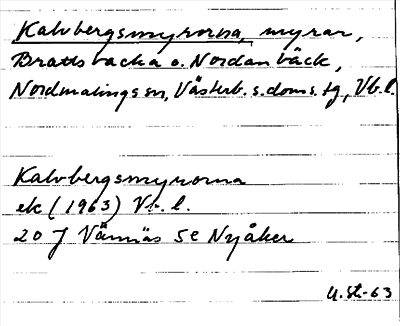 Kalvbergsmyrorna, myrar,
Brattsbacka o. Nordanbäck,
Nordmalings sn, Västerb. s. doms. tg, Vb. l.
Kalvbergsmyrorna
ek (1963) Vb. l.
20 J Vännäs SE Nyåker
U. St.-63